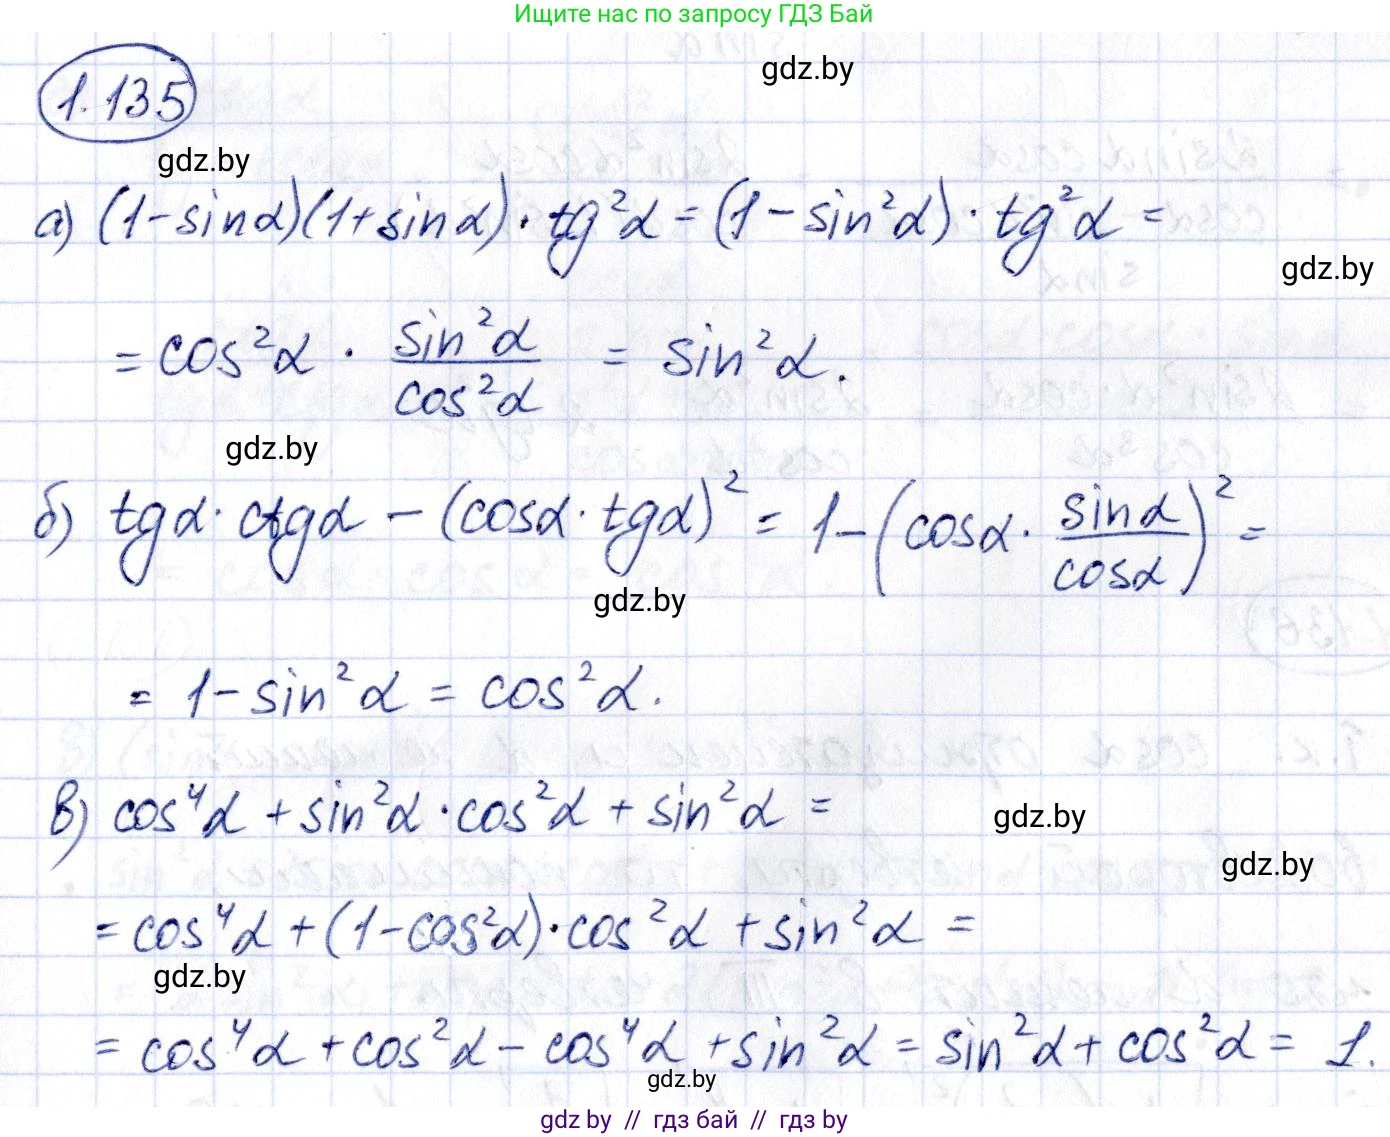 Ищите нас по запросу ГДЗ Бай
gdz.by
1.135
gdz.by
а) (1-sinα)(1+sinα)·tg²α = (1-sin²α)·tg²α =
gdz.by
= cos²α · sin²α/cos²α = sin²α.
gdz.by
б) tgα·ctgα - (cosα·tgα)² = 1-(cosα·sinα/cosα)² =
gdz.by
= 1-sin²α = cos²α.
в) cos⁴α + sin²α·cos²α + sin²α =
gdz.by
gdz.by
= cos⁴α + (1-cos²α)·cos²α + sin²α =
gdz.by
= cos⁴α + cos²α - cos⁴α + sin²α = sin²α + cos²α = 1.
gdz.by
gdz by // гдз бай // гдз by